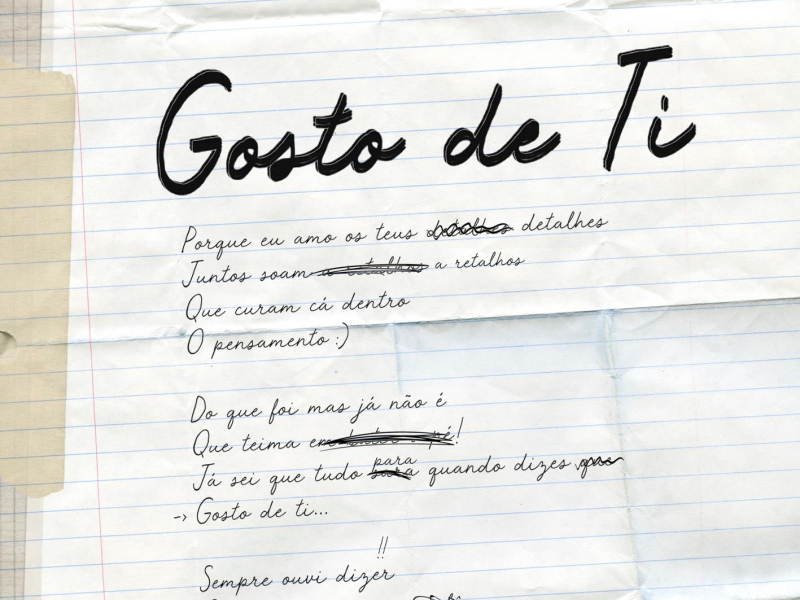 Gosto de Ti
Porque eu amo os teus detalhes detalhes
Juntos soam a retalhos
Que curam cá dentro
O pensamento :)
Do que foi mas já não é
Que teima em bater o pé!
para
Já sei que tudo quando dizes que
-> Gosto de ti...
!!
Sempre ouvi dizer